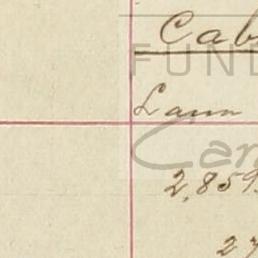 Cab
FUND
Laun
Can
2,859
27